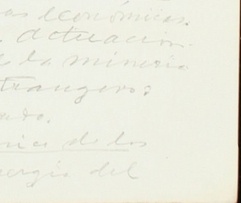 as económicas.
actuacion
la mineria
trangero;
ado.
nica de los
nergia del